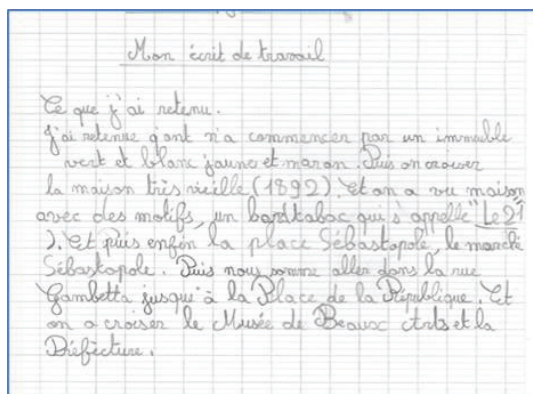 Mon écrit de travail
Ce que j'ai retenu.
J'ai retenue q'ont n'a commencer par un immeuble
vert et blanc jaune et maron. Puis on croiser
la maison très vieille (1892). Et on a vu maison
avec des motifs, un bartabac qui s'appelle "Le 21"
). Et puis enfin la place Sébastopole, le marché
Sébastopole. Puis nous somme aller dans la rue
Gambetta jusqu'à la Place de la République. Et
on a croiser le Musée de Beaux Arts et la
Préfecture.